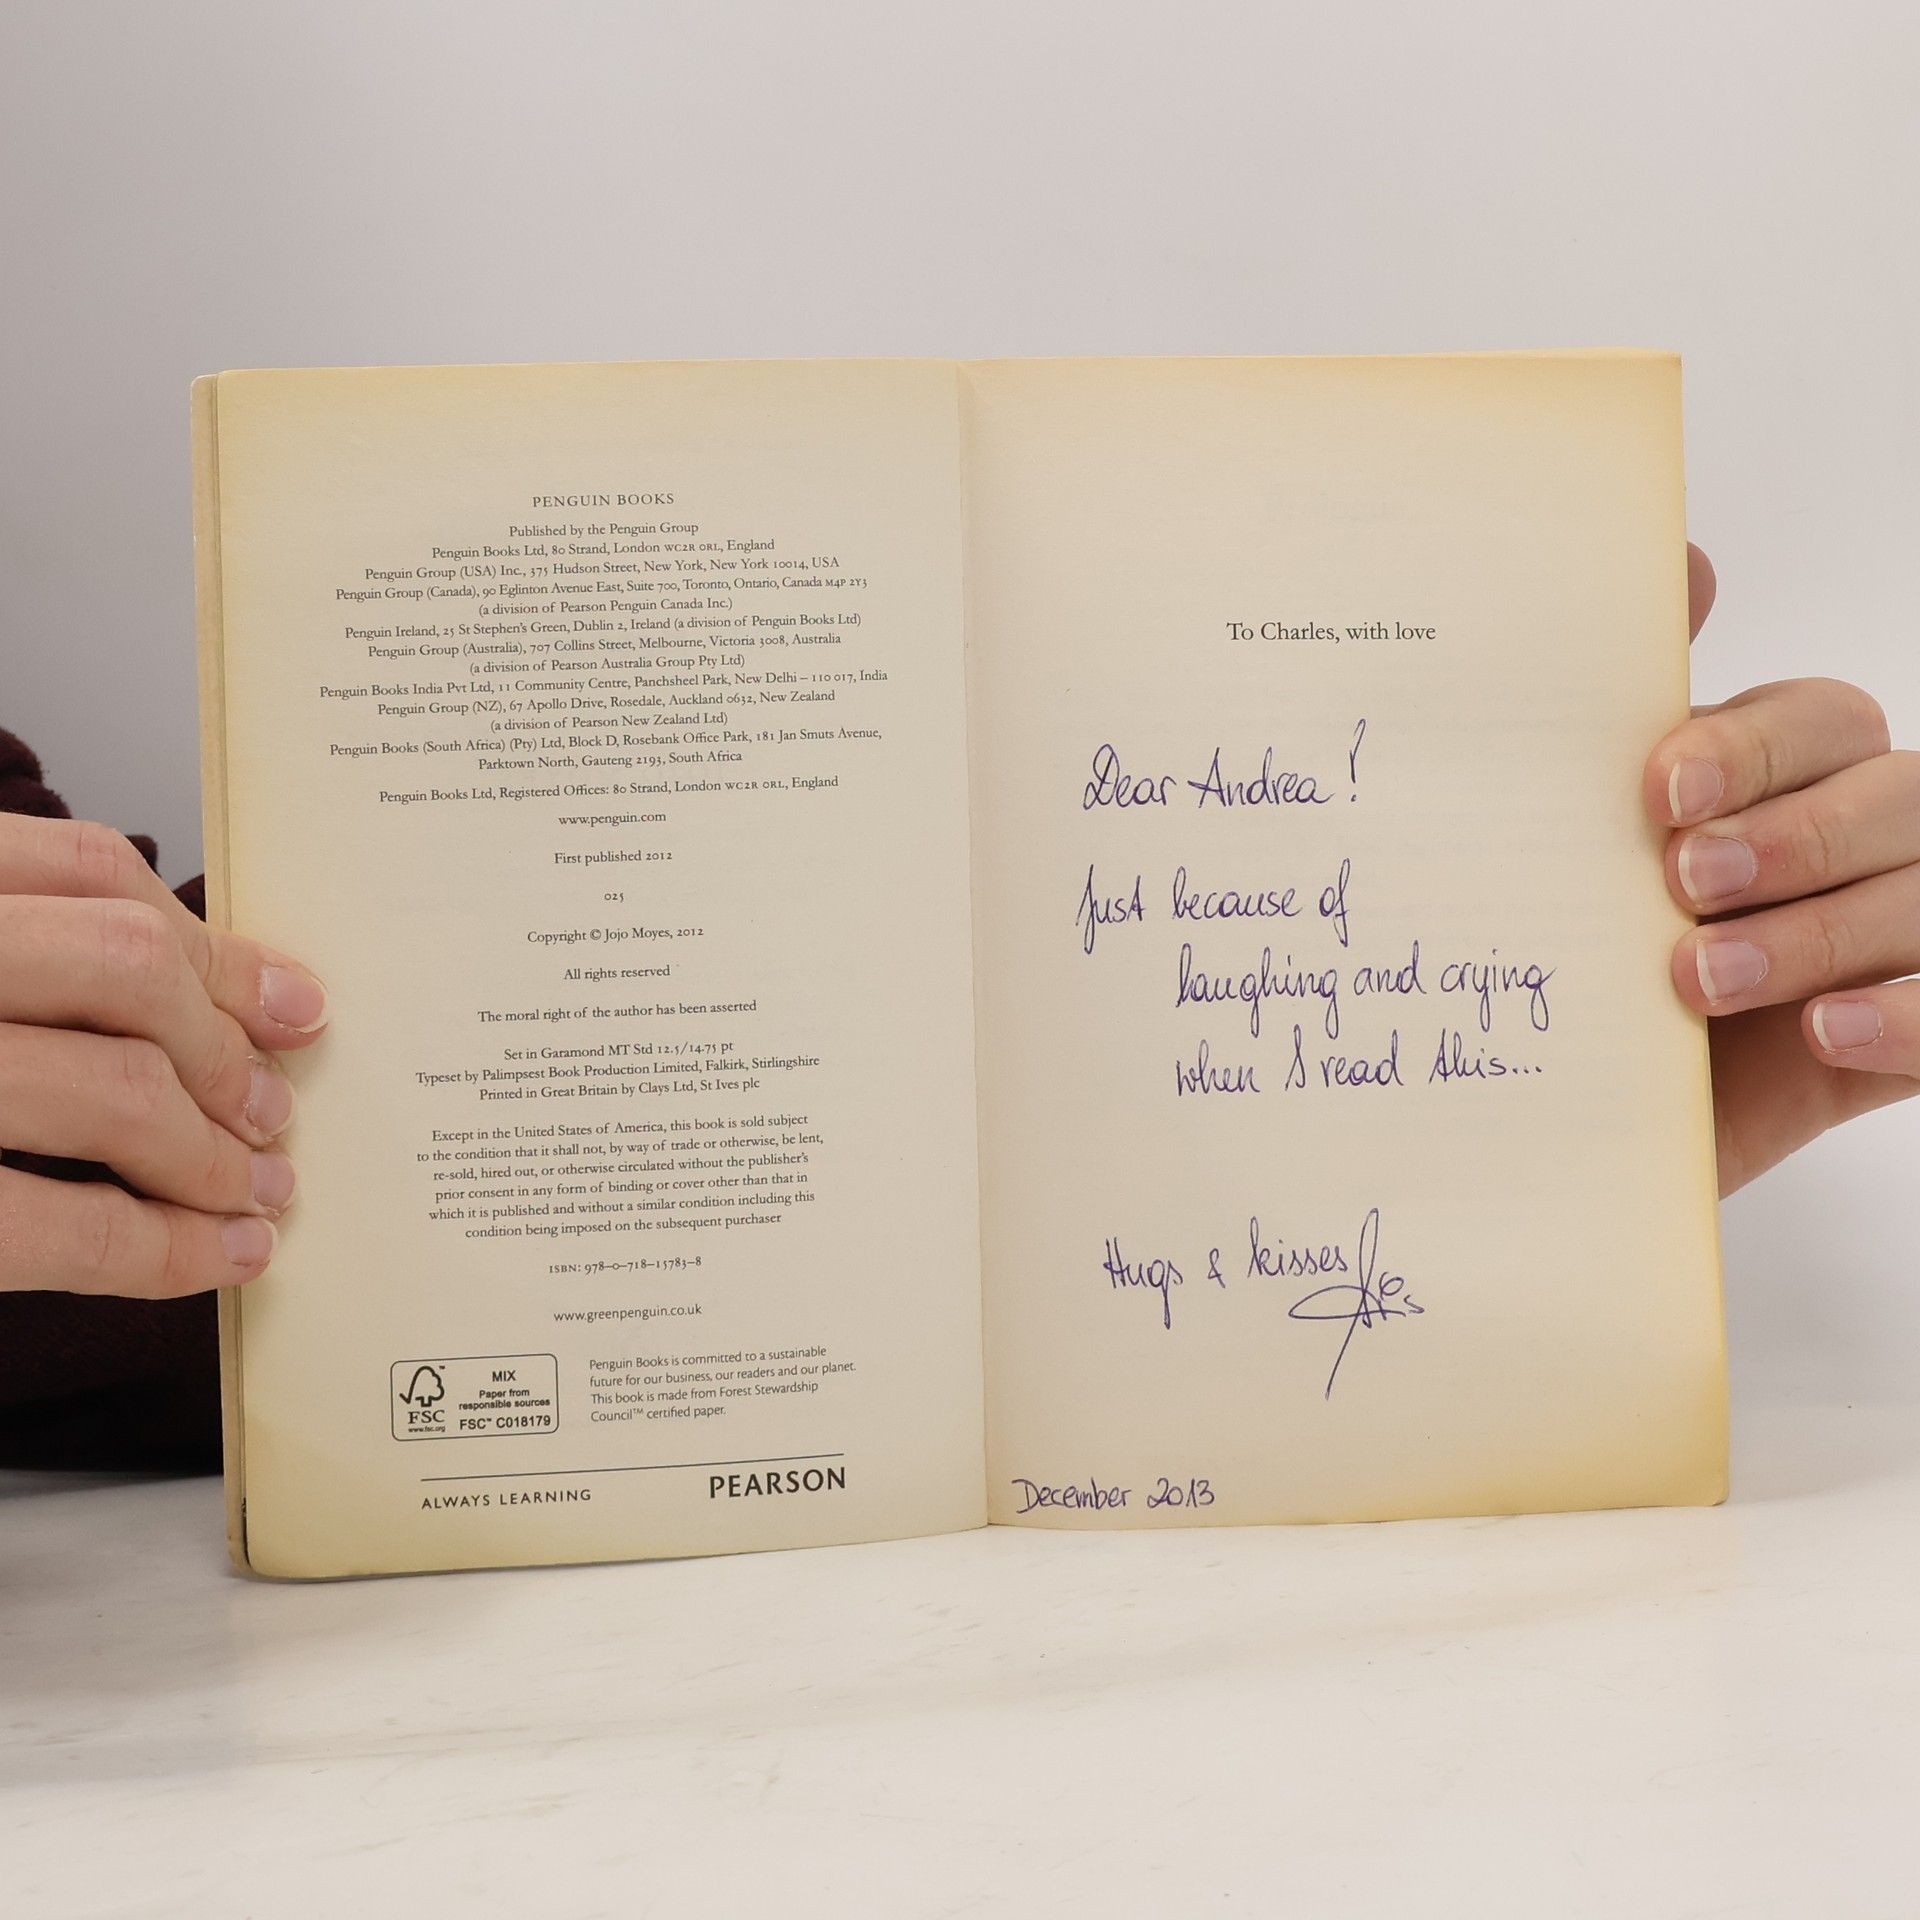 PENGUIN BOOKS
Published by the Penguin Group
Penguin Books Ltd, 80 Strand, London WC2R 0RL, England
Penguin Group (USA) Inc., 375 Hudson Street, New York, New York 10014, USA
Penguin Group (Canada), 90 Eglinton Avenue East, Suite 700, Toronto, Ontario, Canada M4P 2Y3
(a division of Pearson Penguin Canada Inc.)
Penguin Ireland, 25 St Stephen's Green, Dublin 2, Ireland (a division of Penguin Books Ltd)
Penguin Group (Australia), 707 Collins Street, Melbourne, Victoria 3008, Australia
(a division of Pearson Australia Group Pty Ltd)
Penguin Books India Pvt Ltd, 11 Community Centre, Panchsheel Park, New Delhi – 110 017, India
Penguin Group (NZ), 67 Apollo Drive, Rosedale, Auckland 0632, New Zealand
(a division of Pearson New Zealand Ltd)
Penguin Books (South Africa) (Pty) Ltd, Block D, Rosebank Office Park, 181 Jan Smuts Avenue,
Parktown North, Gauteng 2193, South Africa
Penguin Books Ltd, Registered Offices: 80 Strand, London WC2R 0RL, England
www.penguin.com
First published 2012
025
Copyright © Jojo Moyes, 2012
All rights reserved
The moral right of the author has been asserted
Set in Garamond MT Std 12.5/14.75 pt
Typeset by Palimpsest Book Production Limited, Falkirk, Stirlingshire
Printed in Great Britain by Clays Ltd, St Ives plc
Except in the United States of America, this book is sold subject
to the condition that it shall not, by way of trade or otherwise, be lent,
re-sold, hired out, or otherwise circulated without the publisher's
prior consent in any form of binding or cover other than that in
which it is published and without a similar condition including this
condition being imposed on the subsequent purchaser
ISBN: 978–0–718–15783–8
www.greenpenguin.co.uk
FSC
www.fsc.org
MIX
Paper from
responsible sources
FSC™ C018179
Penguin Books is committed to a sustainable
future for our business, our readers and our planet.
This book is made from Forest Stewardship
Council™ certified paper.
ALWAYS LEARNING
PEARSON
To Charles, with love
Dear Andrea!
Just because of
laughing and crying
when I read this...
Hugs & kisses
December 2013